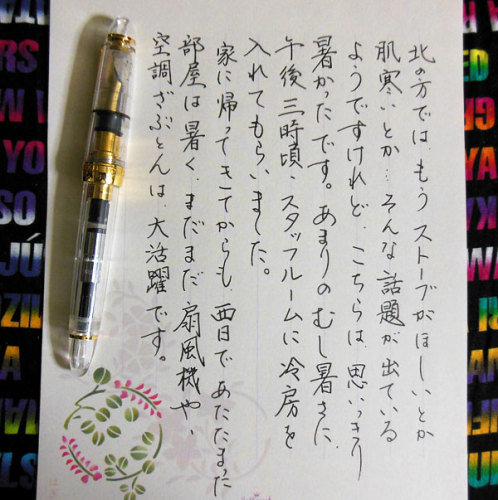 北の方では、もうストーブがほしいとか
肌寒いとか…そんな話題が出ている
ようですけれど、こちらは、思いっきり
暑かったです。あまりのむし暑さに、
午後三時頃、スタッフルームに冷房を
入れてもらいました。
家に帰ってきてからも、西日であたたまった
部屋は暑く、まだまだ扇風機や、
空調ざぶとんは、大活躍です。